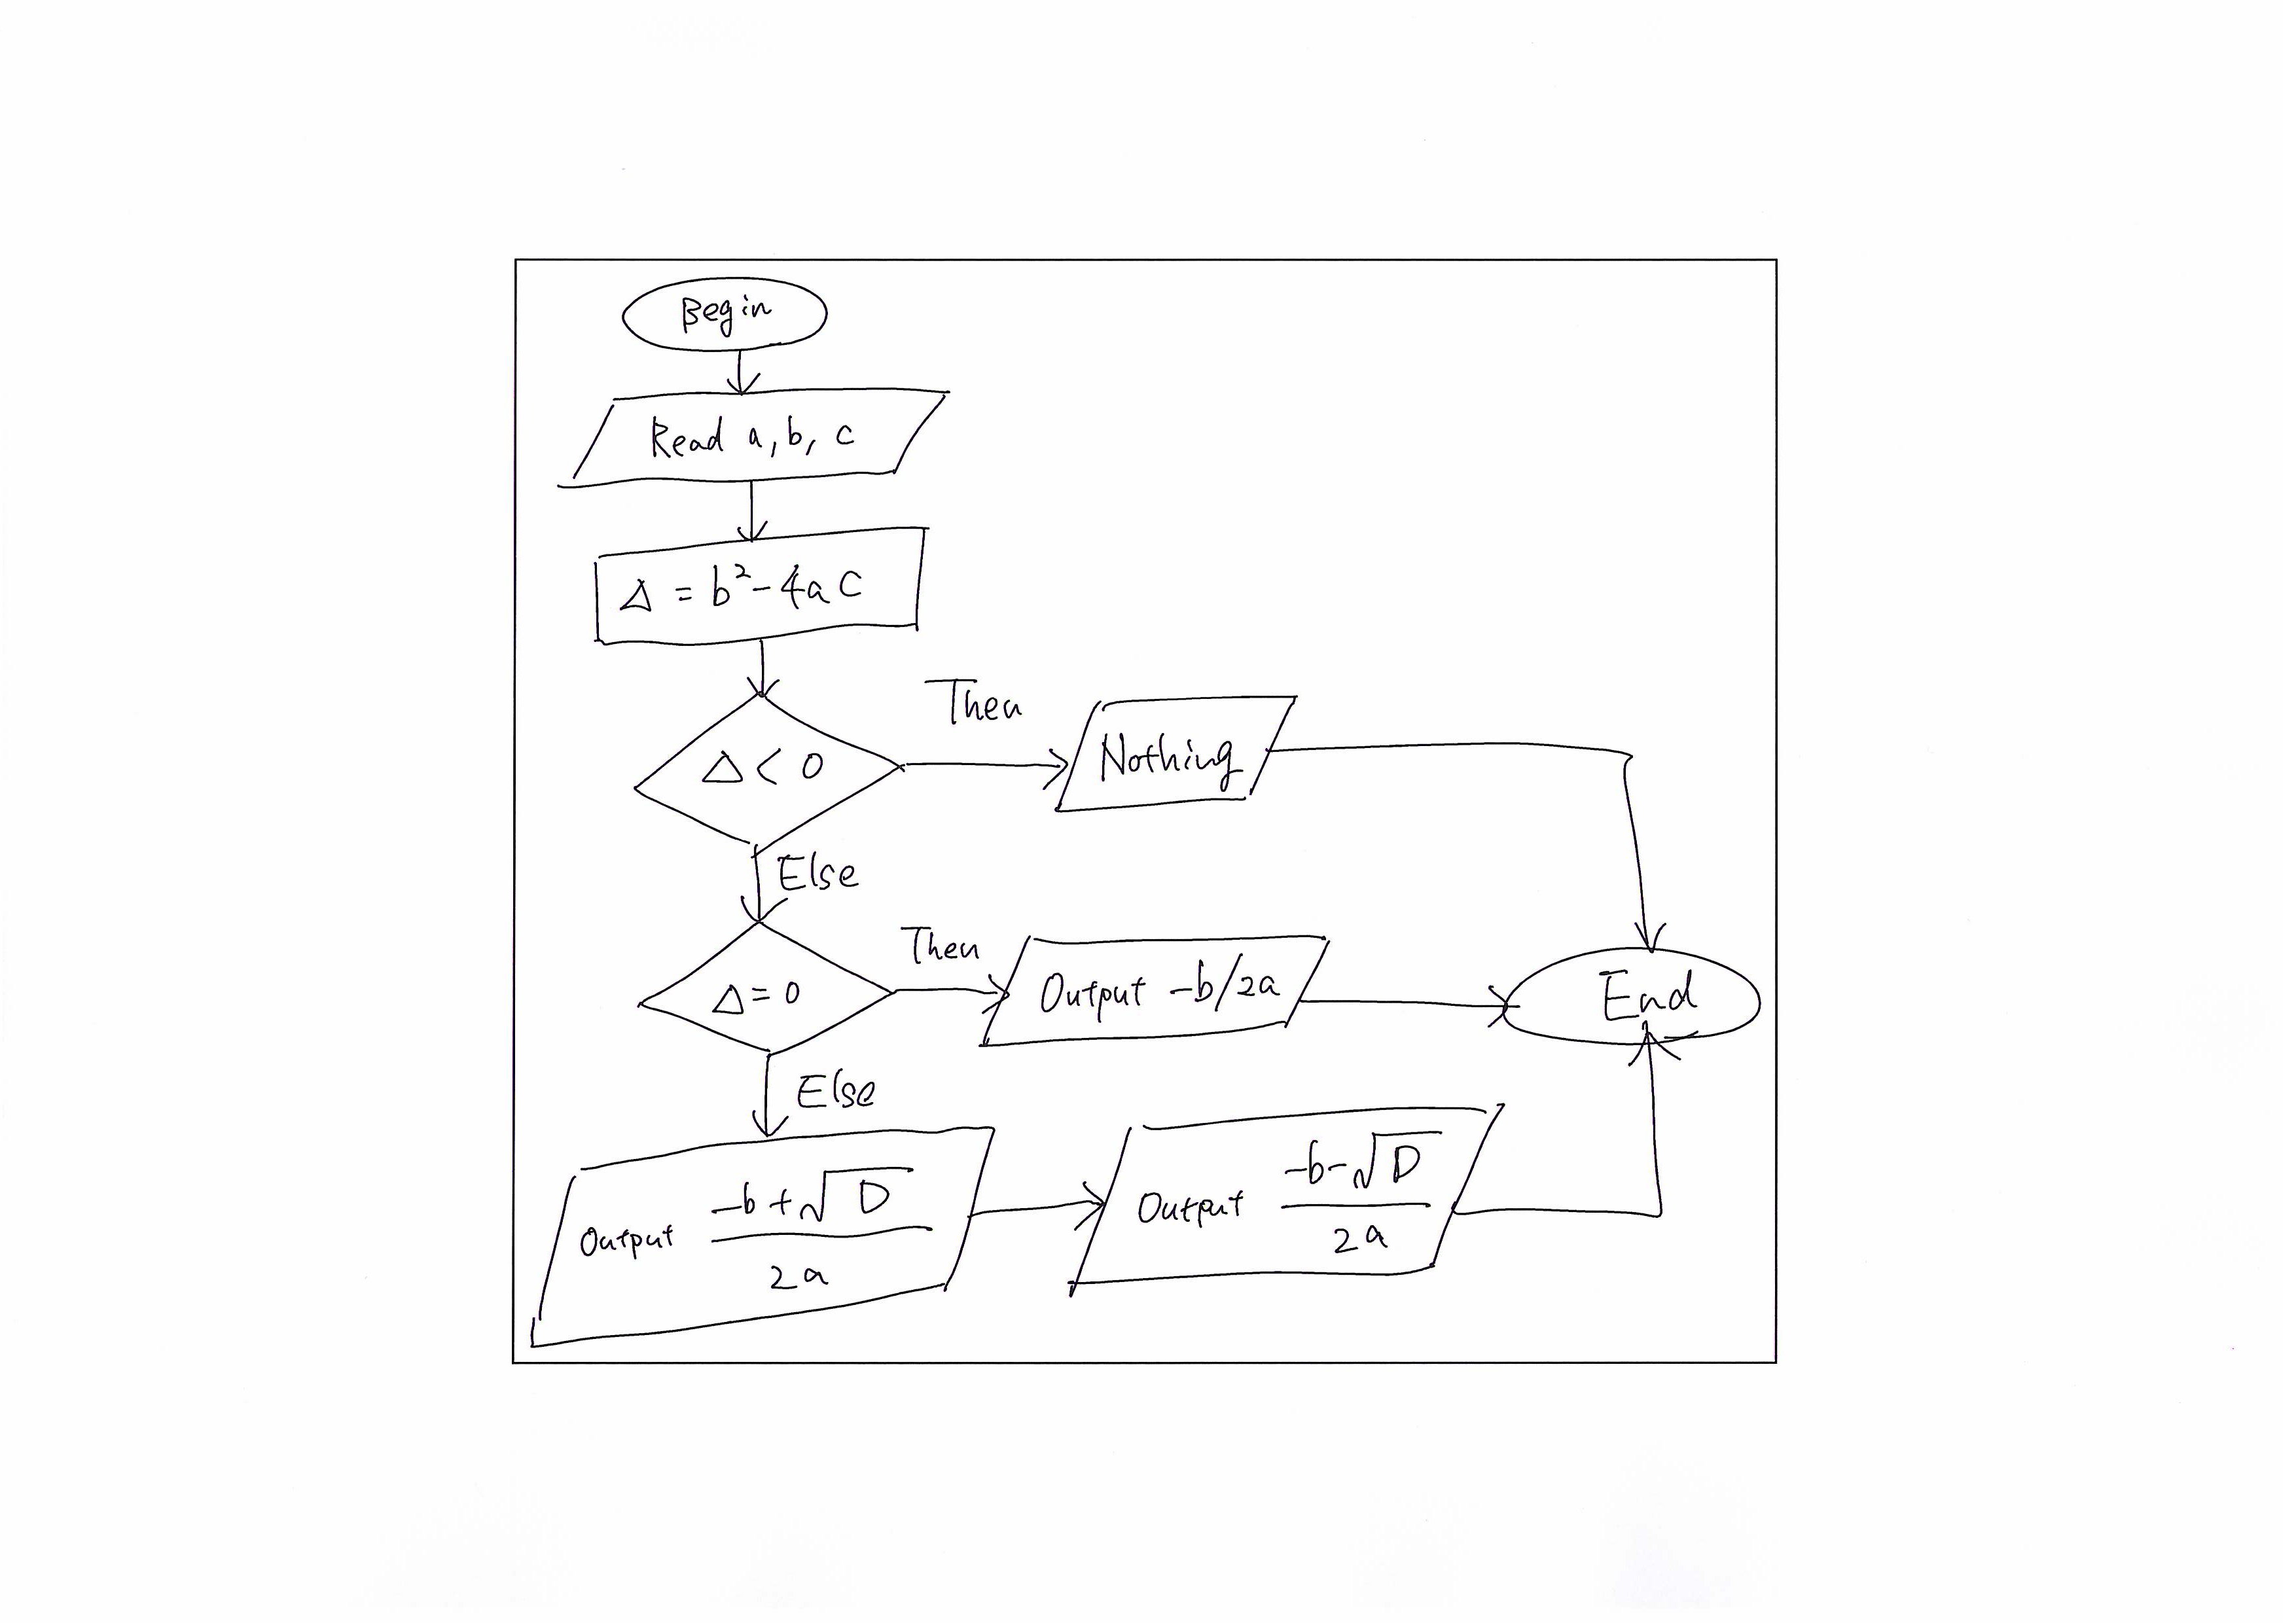 Begin
Read a, b, c
Δ = b² - 4ac
Δ < 0
Then
Nothing
Else
Δ = 0
Then
Output -b/2a
End
Else
Output (-b + √D) / 2a
Output (-b - √D) / 2a